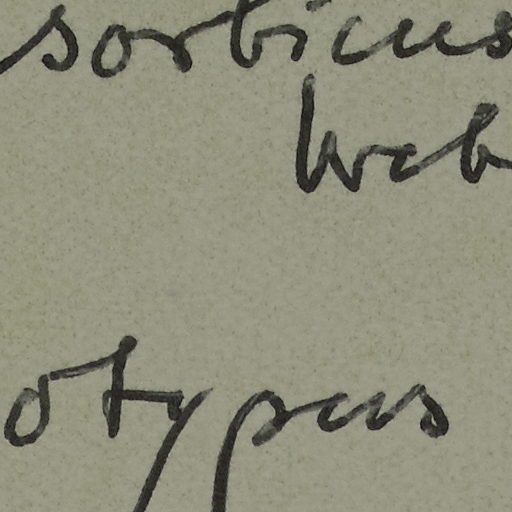 sorbicus
Web
otypus